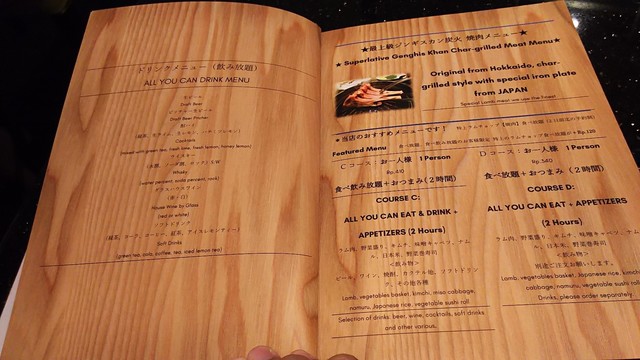 ドリンクメニュー（飲み放題）
ALL YOU CAN DRINK MENU
生ビール
Draft Beer
ピッチャー生ビール
Draft Beer Pitcher
Cocktails
(mixed with green tea, fresh lime, fresh lemon, honey lemon)
ウイスキー
Whisky
グラスハウスワイン
(赤・白)
House Wine by Glass
(red or white)
ソフトドリンク
(緑茶、コーラ、コーヒー、紅茶、アイスレモンティー)
Soft Drinks
(green tea, cola, coffee, tea, iced lemon tea)
★最上級ジンギスカン炭火 焼肉メニュー★
★Superlative Genghis Khan Char-grilled Meat Menu★
Original from Hokkaido, char-
grilled style with special iron plate
from JAPAN
Special Lamb meat we use the finest
★当店のおすすめメニューです！
Featured Menu
+Rp.120
Cコース：お一人様 1 Person
Rp.410
食べ飲み放題＋おつまみ（２時間）
COURSE C:
ALL YOU CAN EAT & DRINK +
APPETIZERS (2 Hours)
ラム肉、野菜盛り、キムチ、味噌キャベツ、ナム
ル、日本米、野菜巻寿司
<飲み物>
ビール、ワイン、焼酎、カクテル他、ソフトドリン
ク、その他各種
Lamb, vegetables basket, kimchi, miso cabbage,
namuru, Japanese rice, vegetable sushi roll
Selection of drinks: beer, wine, cocktails, soft drinks
and other various.
Dコース：お一人様 1 Person
Rp.340
食べ放題＋おつまみ（２時間）
COURSE D:
ALL YOU CAN EAT + APPETIZERS
(2 Hours)
ラム肉、野菜盛り、キムチ、味噌キャベツ、ナム
ル、日本米、野菜巻寿司
<飲み物>
別途ご注文お願いします。
Lamb, vegetables basket, Japanese rice, kimchi,
cabbage, namuru, vegetable sushi roll.
Drinks, please order separately.